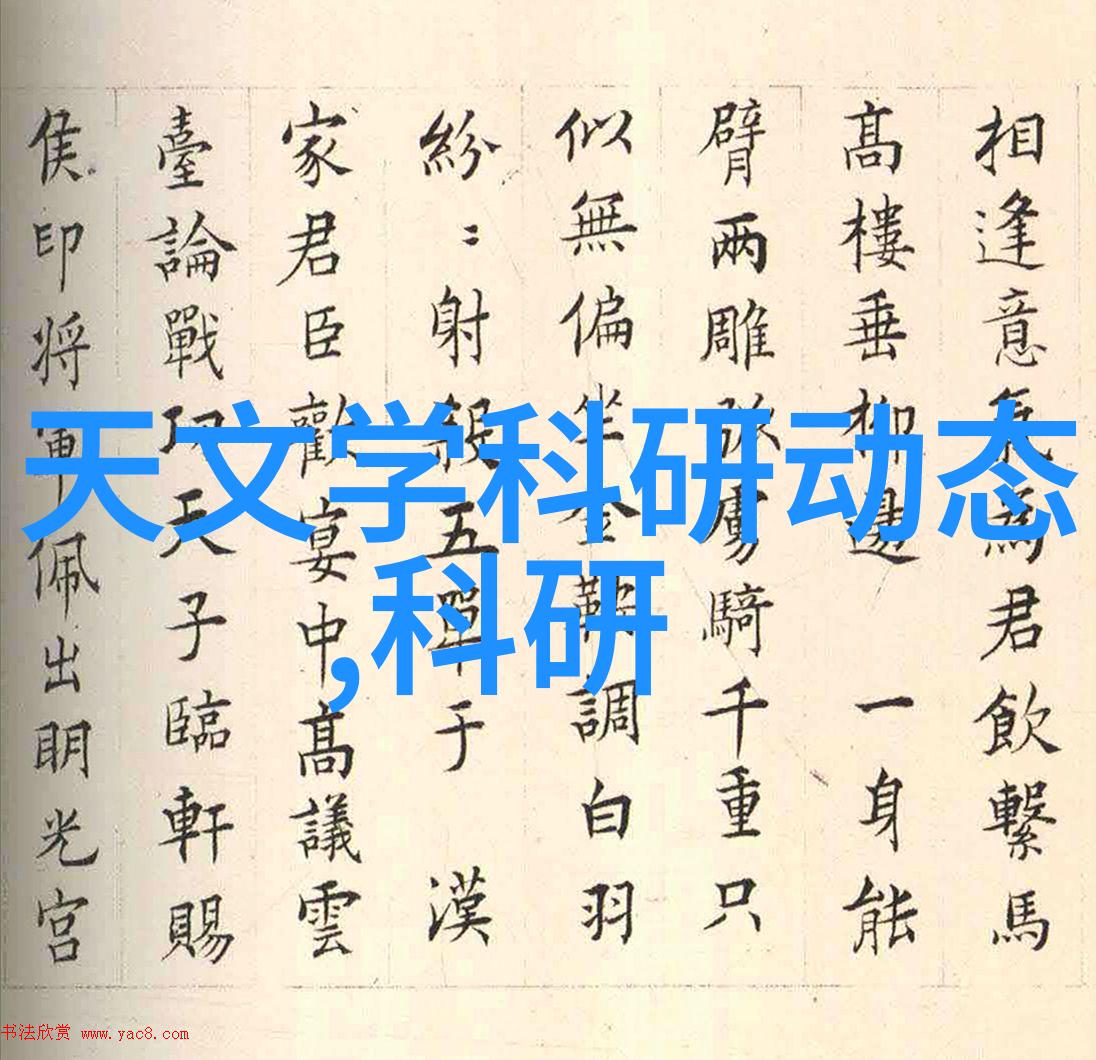 相逢意氣為君飲繫馬
高樓垂柳邊 一身能
臂兩雕弧虜騎千重只
似無偏坐金鞍調白羽
紛〻射殺五單于 漢
家君臣歡宴中高議雲
臺論戰功天子臨軒賜
侯印將軍佩出明光宮
天文学科研动态
,科研
书法欣赏 www.yac8.com